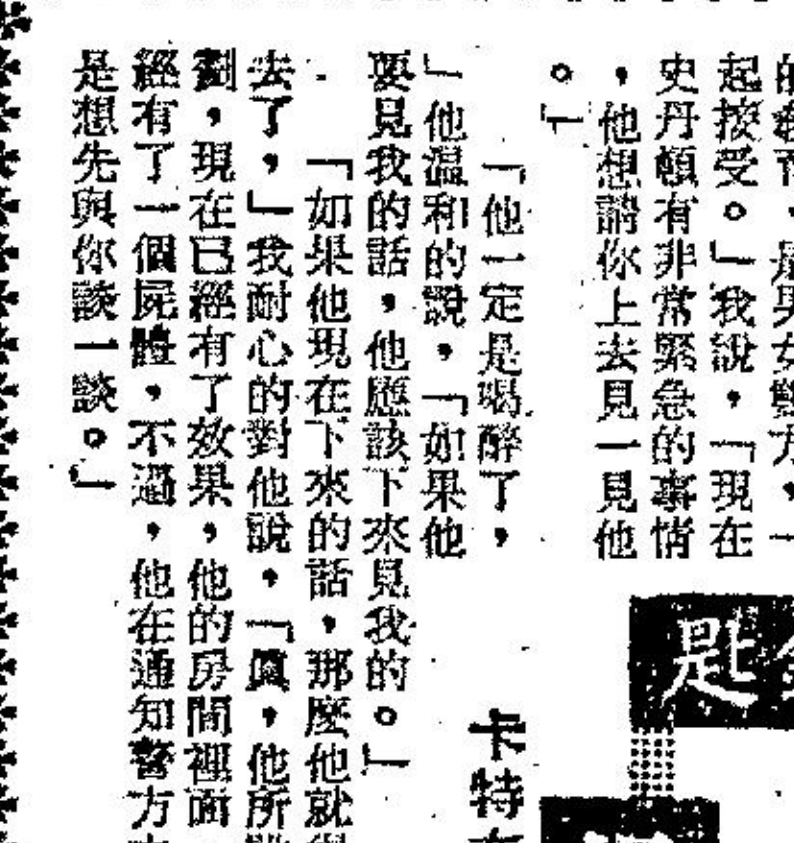 起接受。」我說，「現在
史丹頓有非常緊急的事情
，他想請你上去見一見他
。」
「他一定是喝醉了，
」他溫和的說，「如果他
要見我的話，他應該下來見我的。」
「如果他現在下來的話，那麼他就
去了，」我耐心的對他說，「真，他所
劃，現在已經有了效果，他的房間裡面
經有了一個屍體，不過，他在通知警方
是想先與你談一談。」
匙
卡特